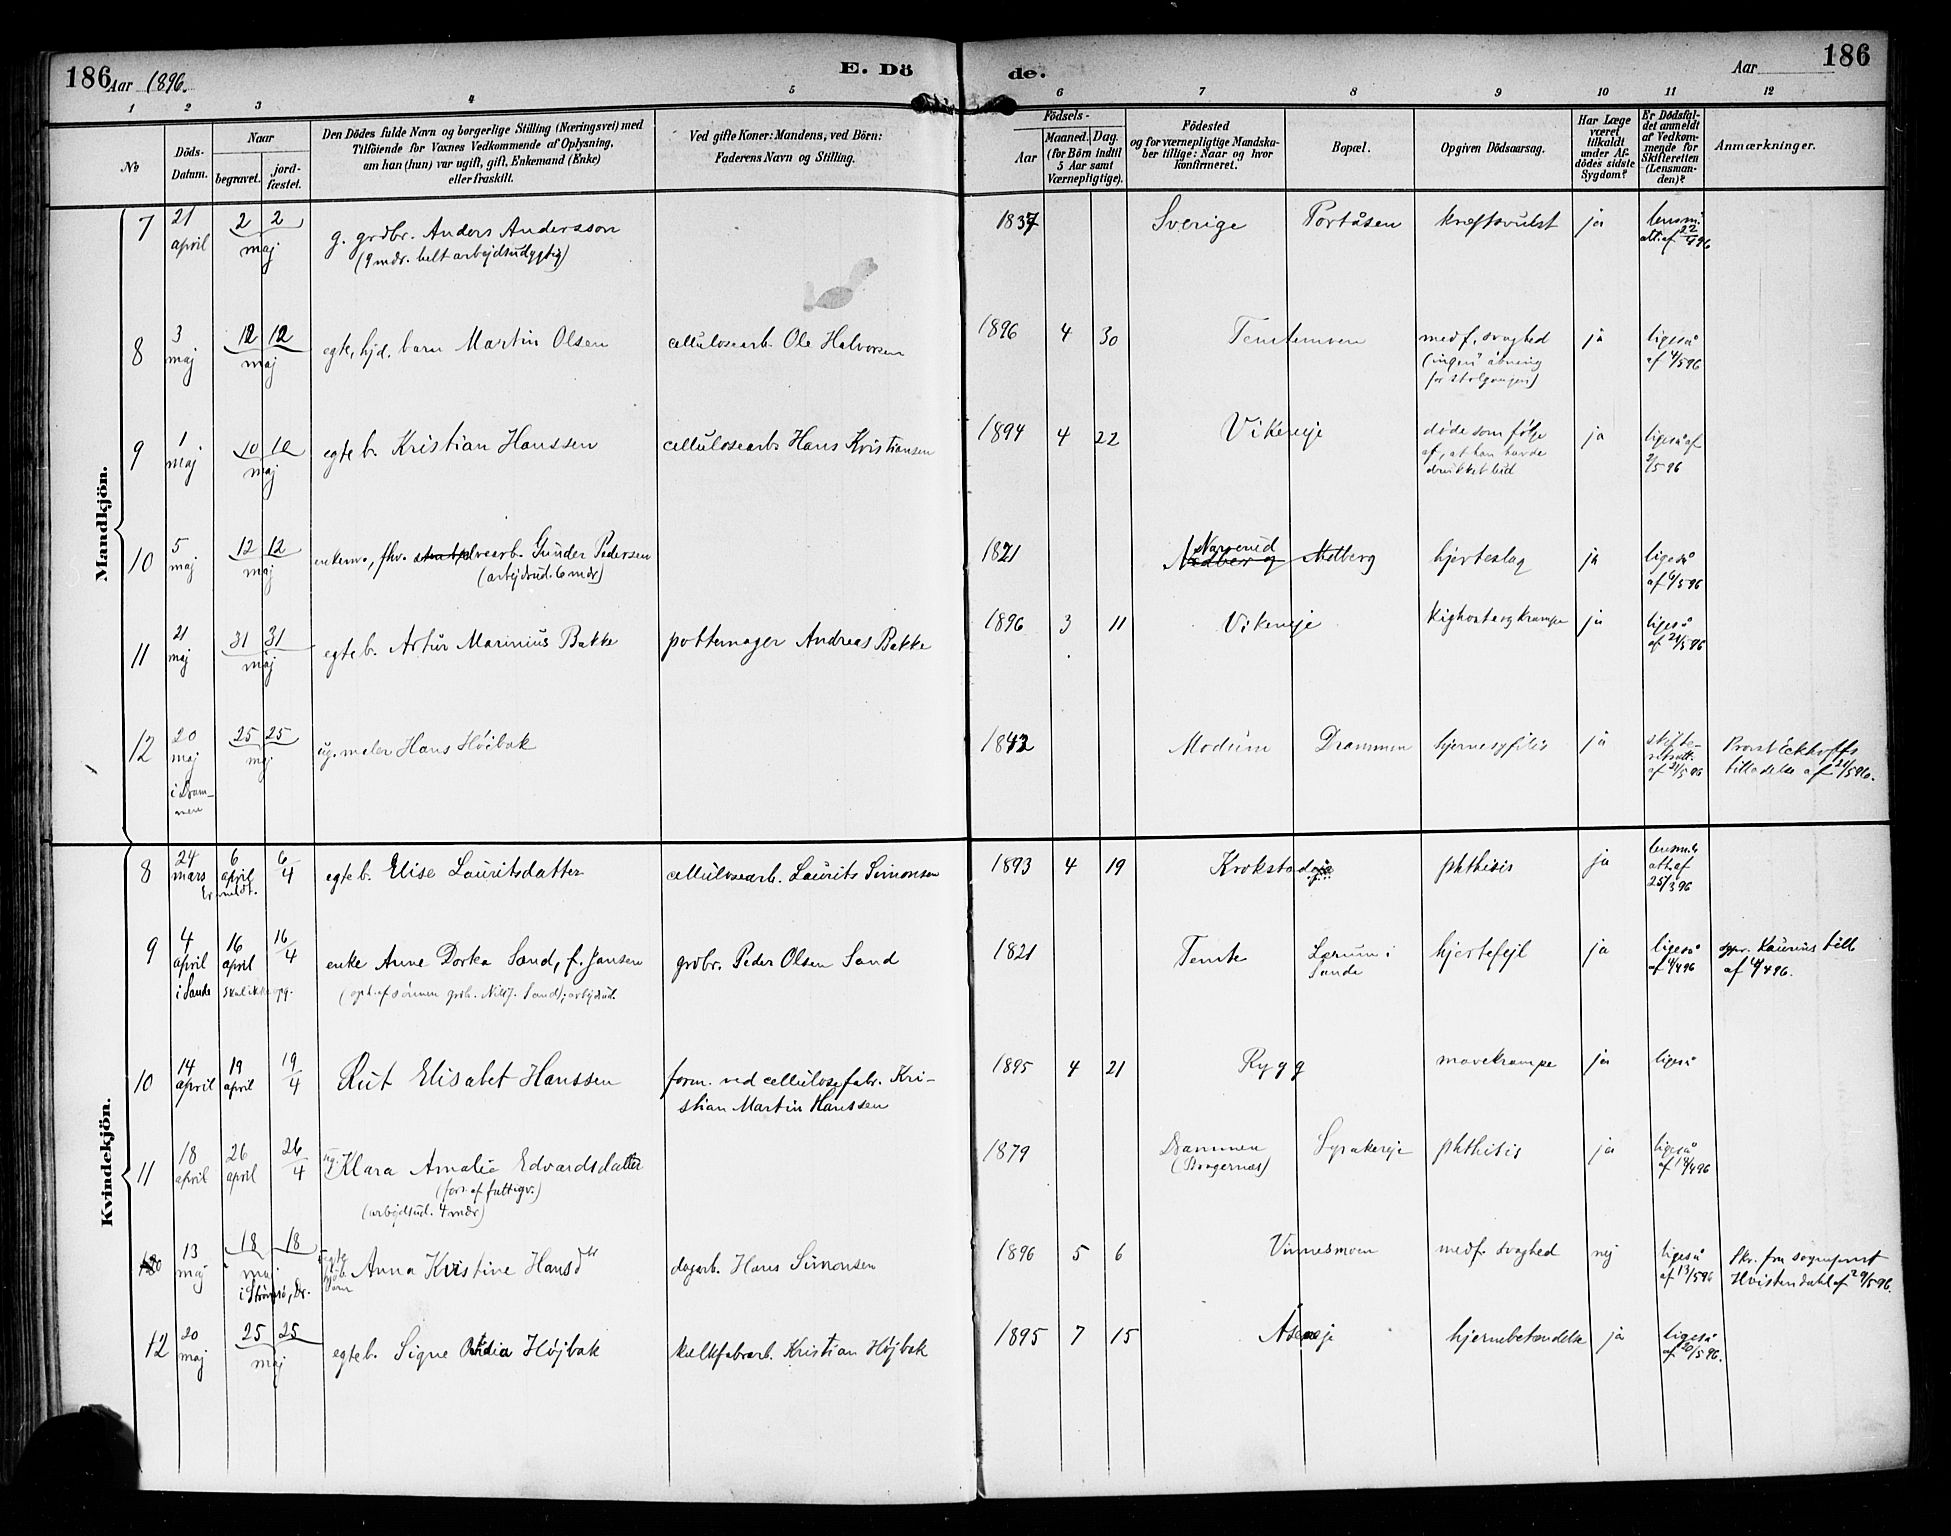 186 Aar 1896.
E. Dö
de.
Aar
186
1 2 3 4 5 6 7 8 9 10 11 12
No
Döds-
Datum.
Naar
begravet.
jord-
fæstet.
Den Dödes fulde Navn og borgerlige Stilling (Næringsvei) med
Tilföiende for Voxnes Vedkommende af Oplysning,
om han (hun) var ugift, gift, Enkemand (Enke)
eller fraskilt.
Ved gifte Koner: Mandens, ved Börn:
Faderens Navn og Stilling.
Födsels-
Aar
Maaned. Dag.
(for Börn indtil
5 Aar samt
Værnepligtige).
Födested
og for værnepligtige Mandska-
ber tillige: Naar og hvor
konfirmeret.
Bopæl.
Opgiven Dödsaarsag.
Har Læge
været
tilkaldt
under Af-
dödes sidste
Sygdom?
Er Dödsfal-
det anmeldt
af Vedkom-
mende for
Skifteretten
(Lensman-
den)?
Anmærkninger.
Mandkjön.
7 21 april 2 2 maj g. grdbr. Anders Andersson
(9 mdr. helt arbejdsudygtig)
1837 Sverige Portåsen kræftsvulst ja lensm.
att. af 22/4 96
8 3 maj 12 12 maj egte, hjd. barn Martin Olsen
cellulosearb. Ole Halvorsen
1896 4 30 Temtemoen medf. svaghed ja ligeså
(ingen åbning af 4/5 96
for stolgangen)
9 1 maj 10 10 maj egte b. Kristian Hanssen
cellulosearb. Hans Kristiansen
1894 4 22 Vikereje døde som følge ja ligeså af
af, at han havde 2/5 96
drukket lud
10 5 maj 12 12 maj enkem., fhv. arb. Gunder Pedersen
(arbejdsud. 6 mdr)
1821 Narverud
Nedberg Nedberg hjerteslag ja ligeså
af 6/5 96
11 21 maj 31 31 maj egte b. Artur Marinius Bakke
pottemager Andreas Bakke
1896 3 11 Vikereje kighoste og krampe ja ligeså
af 21/5 96
12 20 maj i Drammen 25 25 maj ug. maler Hans Höibak
1842 Modum Drammen hjernesyfilis ja skifte-
af 21/5 96
Provst Eckhoffs
tilladelse af 21/5 96.
Kvindekjön.
8 24 mars 6 april 6/4 egte b. Elise Lauritsdatter
Er meldt.
cellulosearb. Laurits Simonsen
1893 4 19 Krokstadeje phthisis ja lensm.
att. af
25/3 96
9 4 april i Sande 16 april 16/4 enke Anne Dorka Sand, f. Jansen
skal ikke opg. (opt. af sønnen grb. Nils J. Sand); arbejdsud.
grdbr. Peder Olsen Sand
1821 Temte Lerum i
Sande hjertefejl ja ligeså
af 4/4 96
spr. Kaurins till
af 4/4 96.
10 14 april 19 april 19/4 Rut Elisabet Hanssen
form. ved cellulosefabr. Kri-
stian Martin Hanssen
1895 4 21 Rygg mavekrampe ja ligeså
11 18 april 26 april 26/4 ug. Klara Amalie Edvardsdatter
(fors. af fattigv.)
(arbejdsud. 4 mdr)
1879 Drammen
(Bragernes) Syrakereje phthisis ja ligeså
af 18/4 96
13 maj 18 18 maj egte hjdb. barn Anna Kristine Hansdtr
i Strømsø, Dr.
dagarb. Hans Simonsen
1896 5 6 Vinnesmoen medf. svaghed nej ligeså
af 13/5 96
Skr. fra sogneprest
Hvistendahl af 29/5 96.
12 20 maj 25 25 maj egte b. Signe Otidia Höjbak
kalkfabrarb. Kristian Höjbak
1895 7 15 Åseneje hjernebetændelse ja ligeså
af 20/5 96.